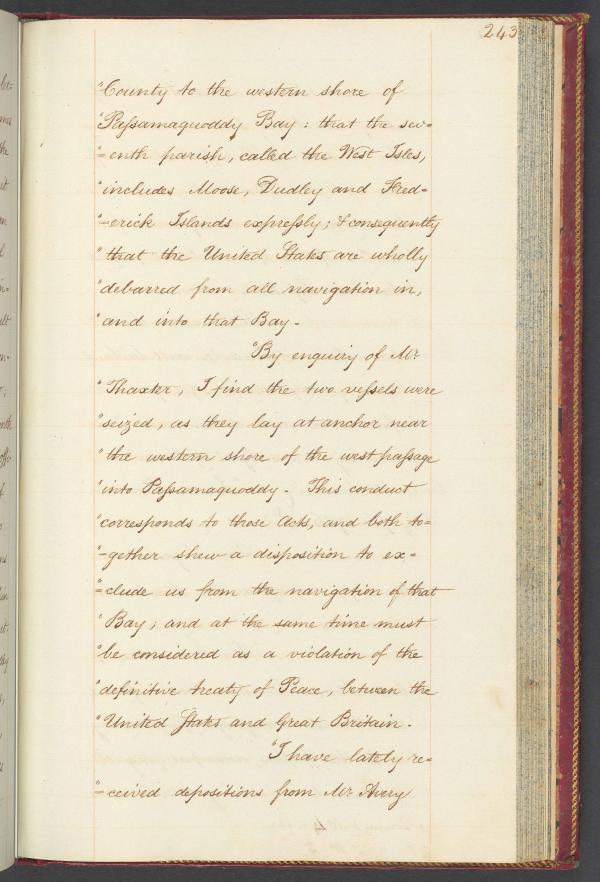 243
"County to the western shore of
"Passamaquoddy Bay: that the sev=
"=enth parish, called the West Isles,
"includes Moose, Dudley and Fred=
"=erick Islands expressly; & consequently
"that the United States are wholly
"debarred from all navigation in,
"and into that Bay.
"By enquiry of Mr.
"Thaxter, I find the two vessels were
"seized, as they lay at anchor near
"the western shore of the west passage
"into Passamaquoddy. This conduct
"corresponds to those Acts, and both to=
"=gether shew a disposition to ex=
"=clude us from the navigation of that
"Bay; and at the same time must
"be considered as a violation of the
"definitive treaty of Peace, between the
"United States and Great Britain.
"I have lately re=
"=ceived depositions from Mr. Avery